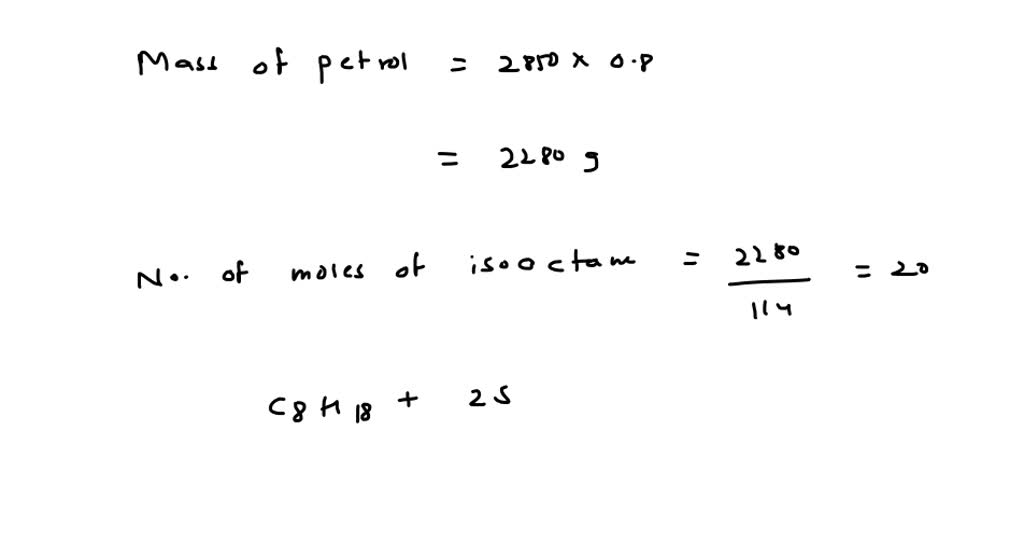 Mass of petrol = 2850 x 0.8
= 2280 g
No. of moles of isooctane = 2280 / 114 = 20
C8H18 + 25